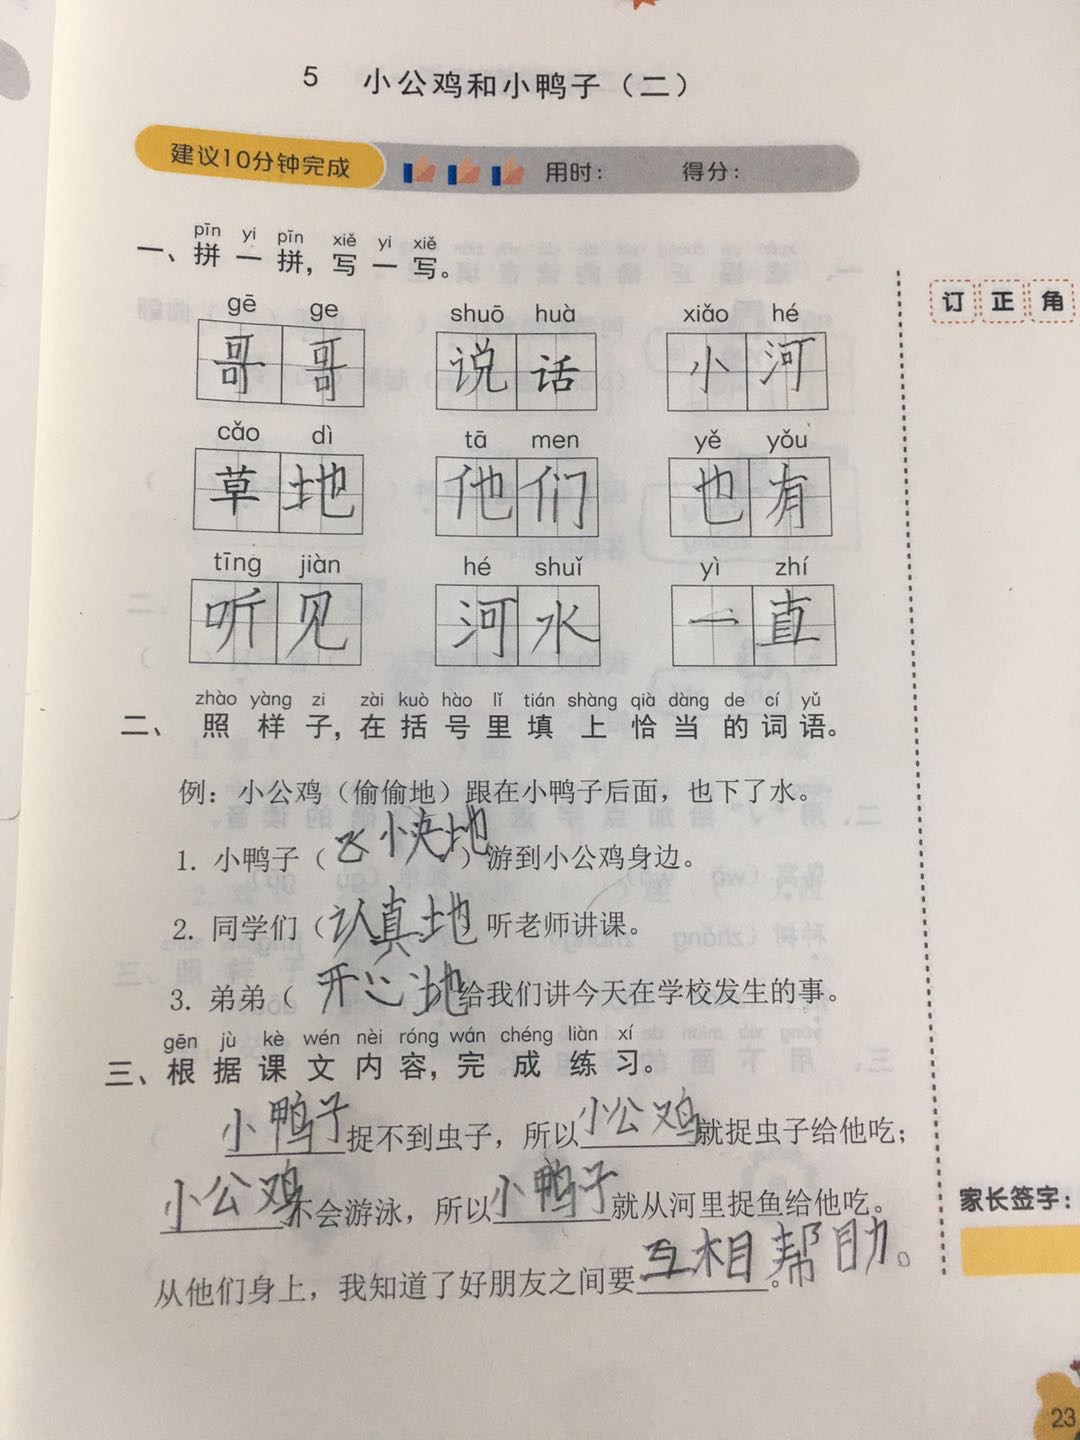 5 小公鸡和小鸭子（二）
建议10分钟完成 用时： 得分：
pīn yi pīn xiě yi xiě
一、拼一拼，写一写。
订正角
gē ge shuō huà xiǎo hé
哥哥 说话 小河
cǎo dì tā men yě yǒu
草地 他们 也有
tīng jiàn hé shuǐ yì zhí
听见 河水 一直
zhào yàng zi zài kuò hào lǐ tián shàng qià dàng de cí yǔ
二、照样子，在括号里填上恰当的词语。
例：小公鸡（偷偷地）跟在小鸭子后面，也下了水。
1. 小鸭子（飞快地）游到小公鸡身边。
2. 同学们（认真地）听老师讲课。
3. 弟弟（开心地）给我们讲今天在学校发生的事。
gēn jù kè wén nèi róng wán chéng liàn xí
三、根据课文内容，完成练习。
小鸭子捉不到虫子，所以小公鸡就捉虫子给他吃；
小公鸡不会游泳，所以小鸭子就从河里捉鱼给他吃。
家长签字：
从他们身上，我知道了好朋友之间要互相帮助。
23